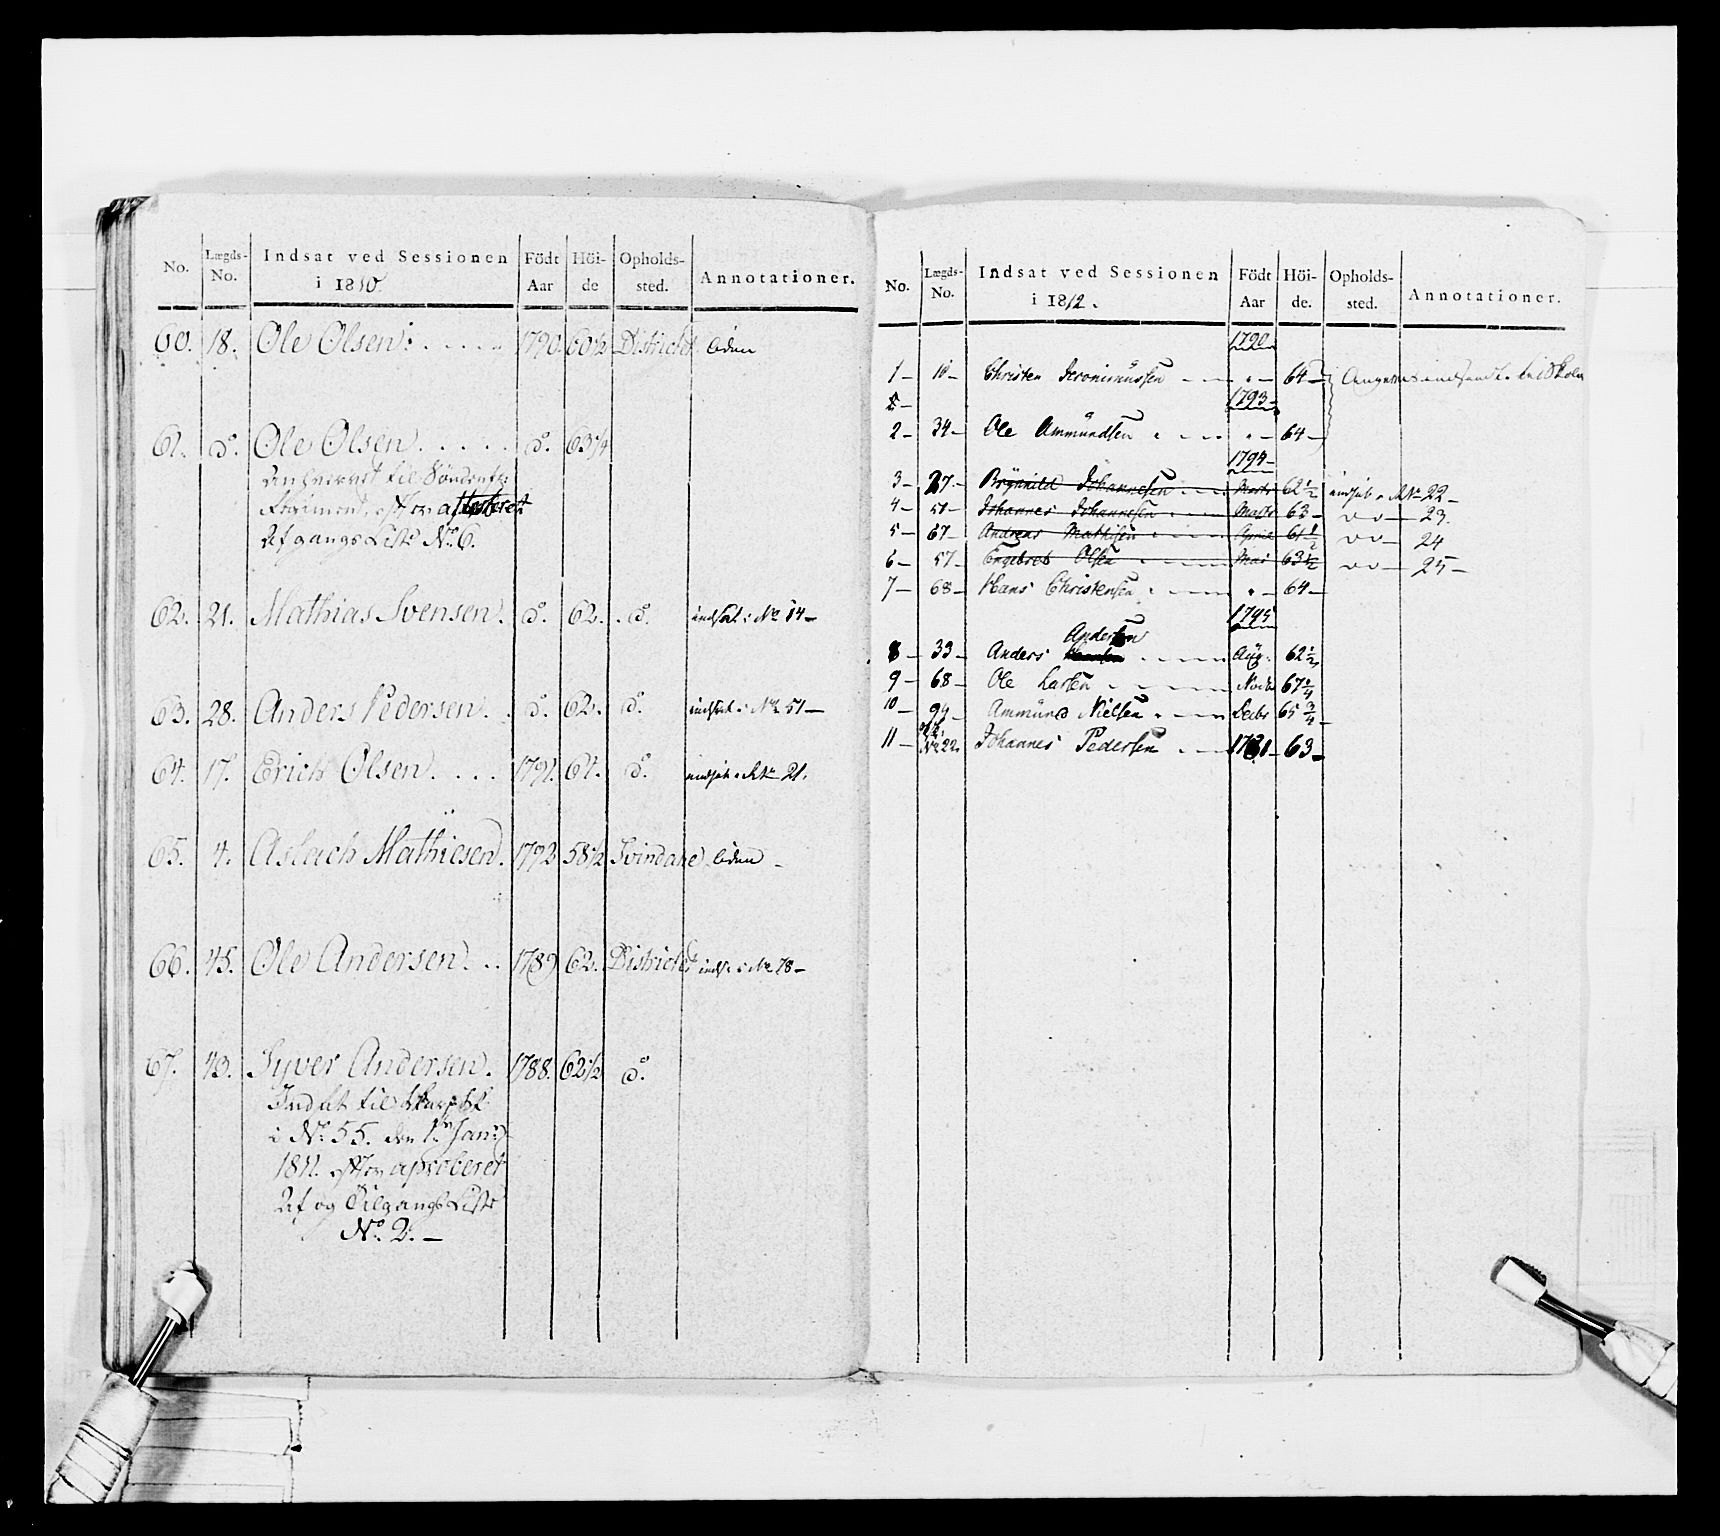 No. Lægds-No. Indsat ved Sessionen i 1810. Födt Aar Höi-de Opholds-sted. Annotationer.
60. 18. Ole Olsen 1790. 60½ Districtet liden
61. do. Ole Olsen do. 63¼
til Söndenf:
Regiment, efter attesteret
Afgangs Liste No. 6.
62. 21. Mathias Svensen. do. 62. do. indsat i No 14
63. 28. Anders Pedersen. do. 62. do. indsat i No 51
64. 17. Erich Olsen. 1791. 61. do. indsat i No 21.
65. 4. Aslach Mathiesen. 1792 58½ Svindahl liden
66. 45. Ole Andersen. 1789 62. Districtet inds. i No 78
67. 43. Syver Andersen. 1788. 62½ do.
Indsat til
i No. 55. den 1. Jan:
1811. efter aproberet
Af og Tilgangs Liste
No. 2.
No. Lægds-No. Indsat ved Sessionen i 1812. Födt Aar Höi-de. Opholds-sted. Annotationer.
1790
1 10 Christen Jeronimussen " 64
1793
2 34 Ole Ammundsen " 64
1794
3 27 Brÿnnild Johannesen Marts 62½ indsat i No 22
4 51 Johannes Johannesen Marts 63 " " 23.
5 67 Andreas Mathisen April 61½ " " 24
6 57 Engebret Olsen Mai 63½ " " 25
7 68 Hans Christensen " 64
1795
Andersen
8 33 Anders Aug. 62½
9 68 Ole Larsen Novbr 67¼
10 94 Ammund Nielsen Decbr 65¾
11 No 22. Johannes Pedersen 1781 63